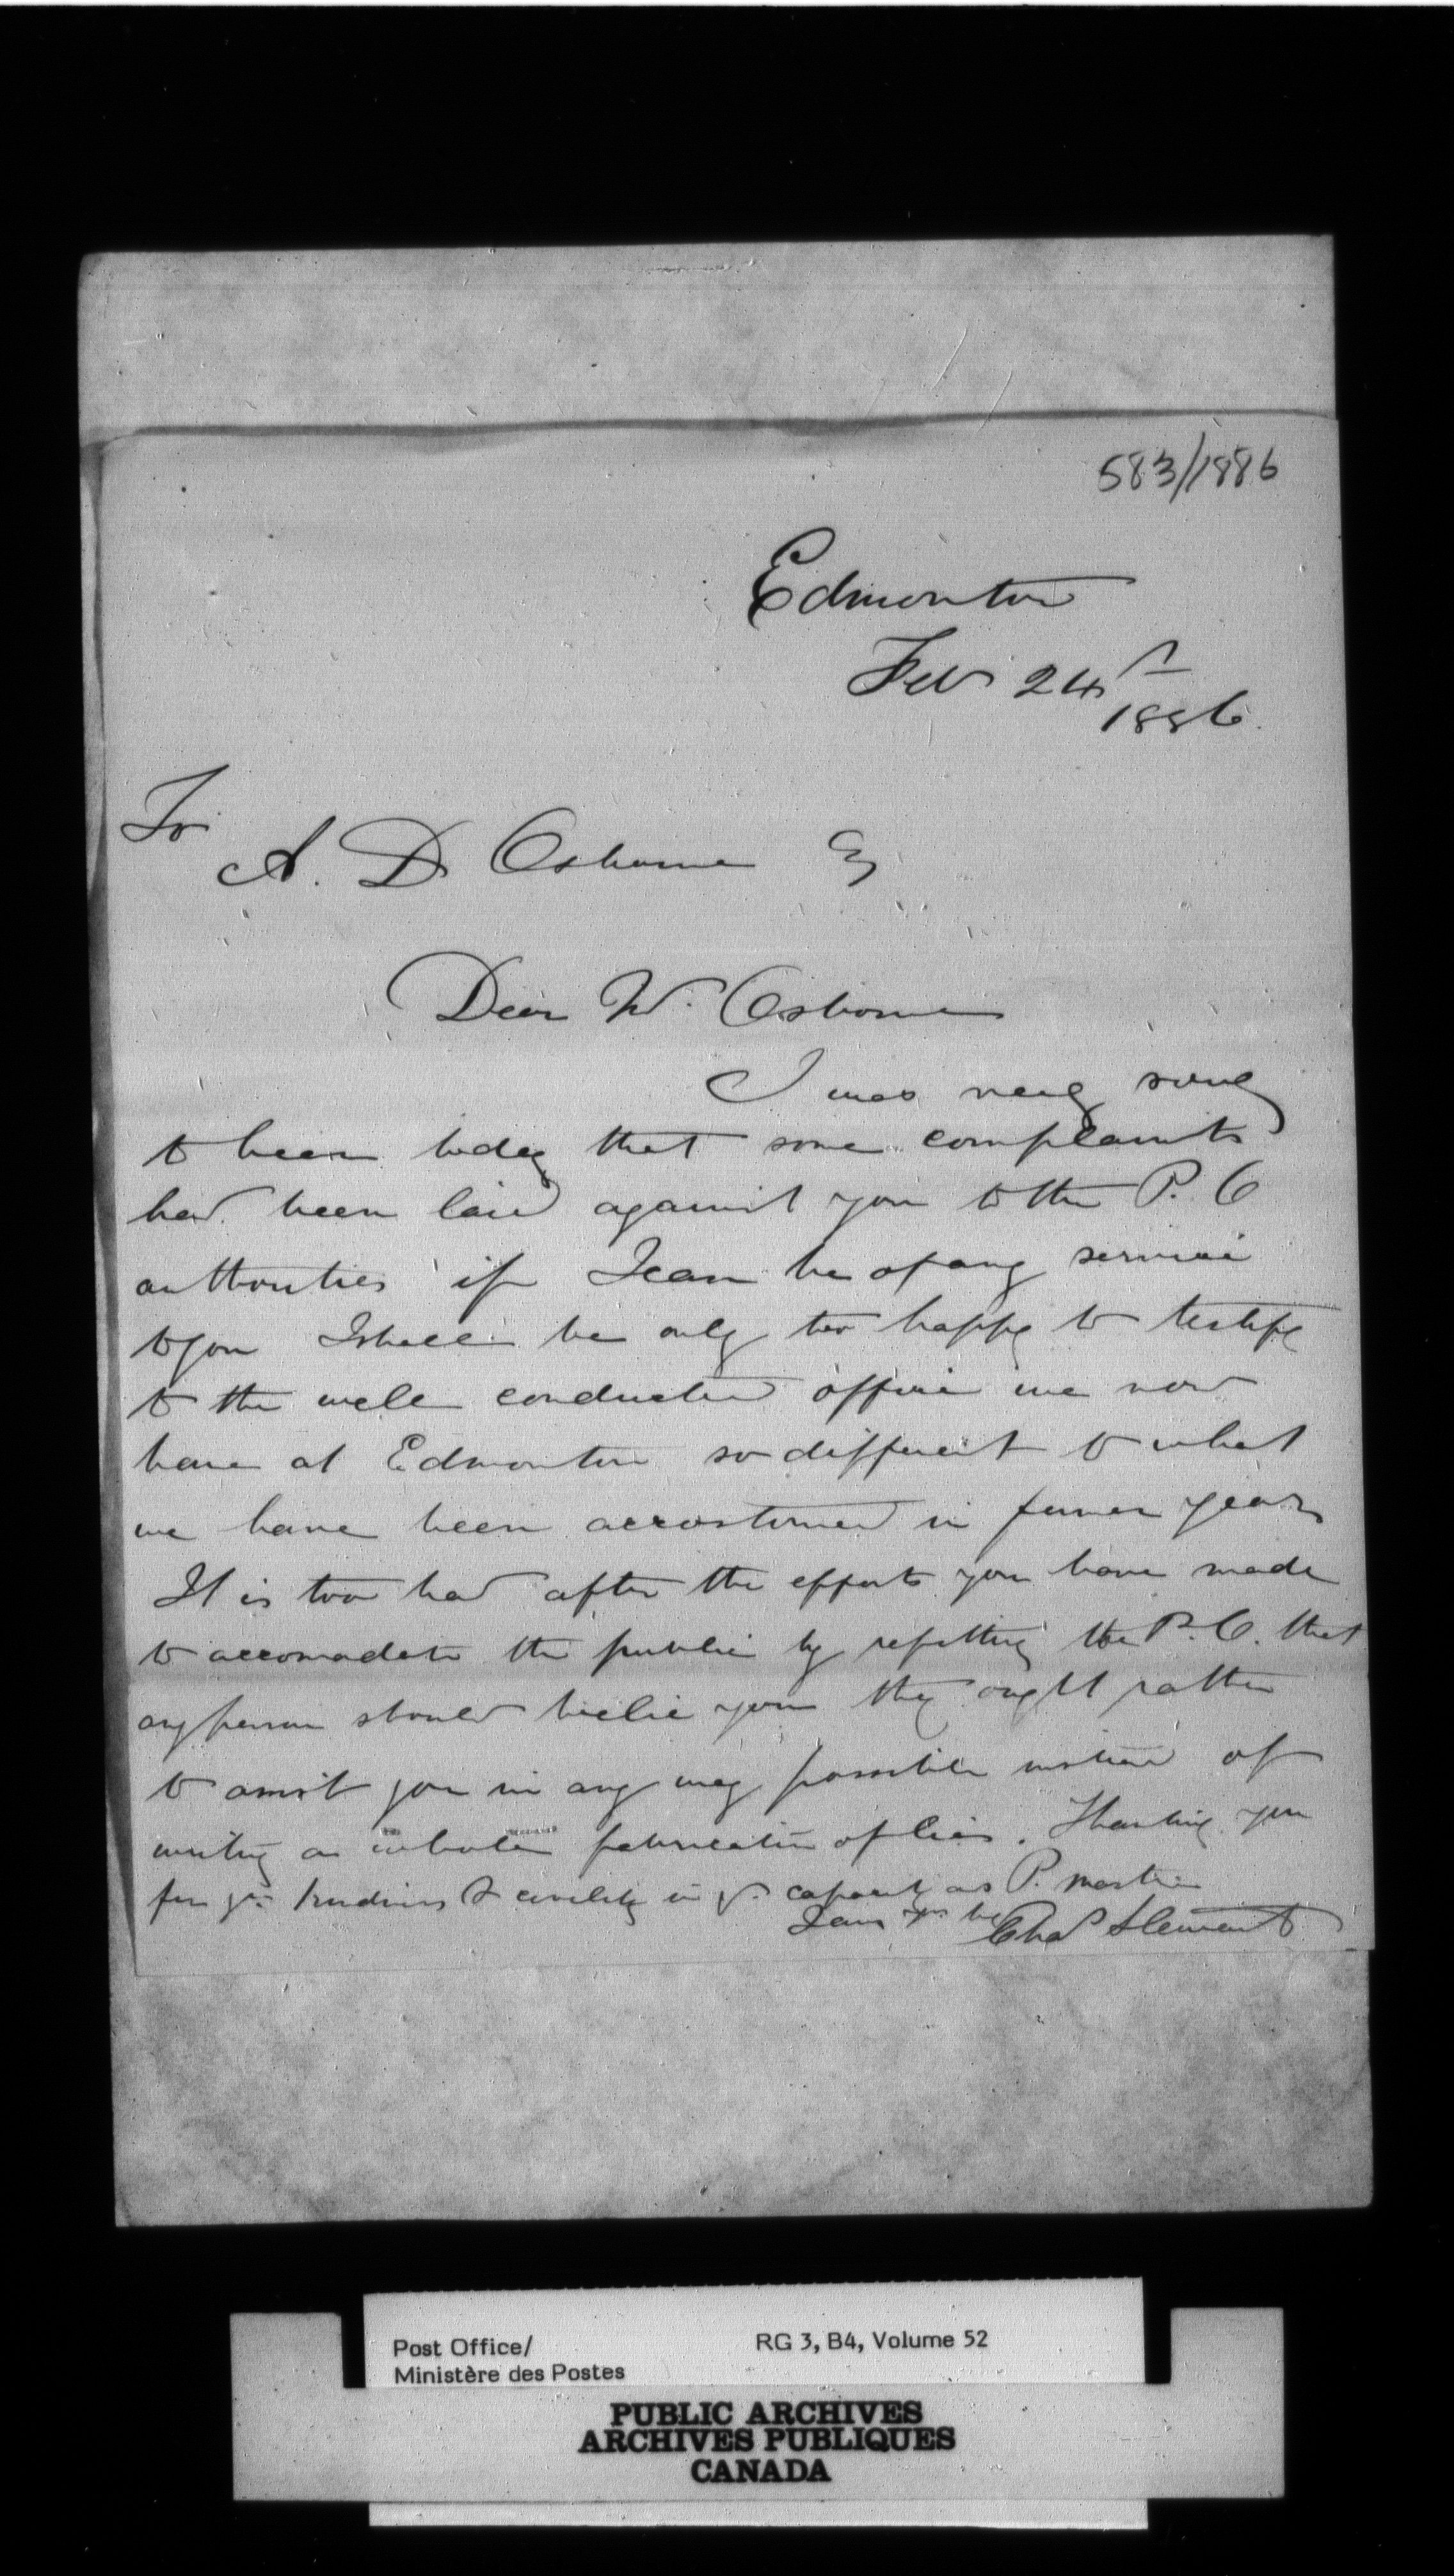 583/1886
Edmonton
Feb 24th
1886.
To
A. D Osborne Esq
Dear Mr. Osborne
I was very sorry
to hear today that some complaints
had been laid against you to the P. O
authorities if I can be of any service
to you I shall be only too happy to testify
to the well conducted office we now
have at Edmonton so different to what
we have been accustomed in former years
It is too bad after the efforts you have made
to accomodate the public by refitting the P. O. that
any person should belie you they ought rather
to assist you in any way possible instead of
writing a whole fabrication of lies. Thanking you
for yr. kindness & civility in yr. capacity as P. master
I am yrs Chas Stewart
Post Office/
Ministère des Postes
RG 3, B4, Volume 52
PUBLIC ARCHIVES
ARCHIVES PUBLIQUES
CANADA